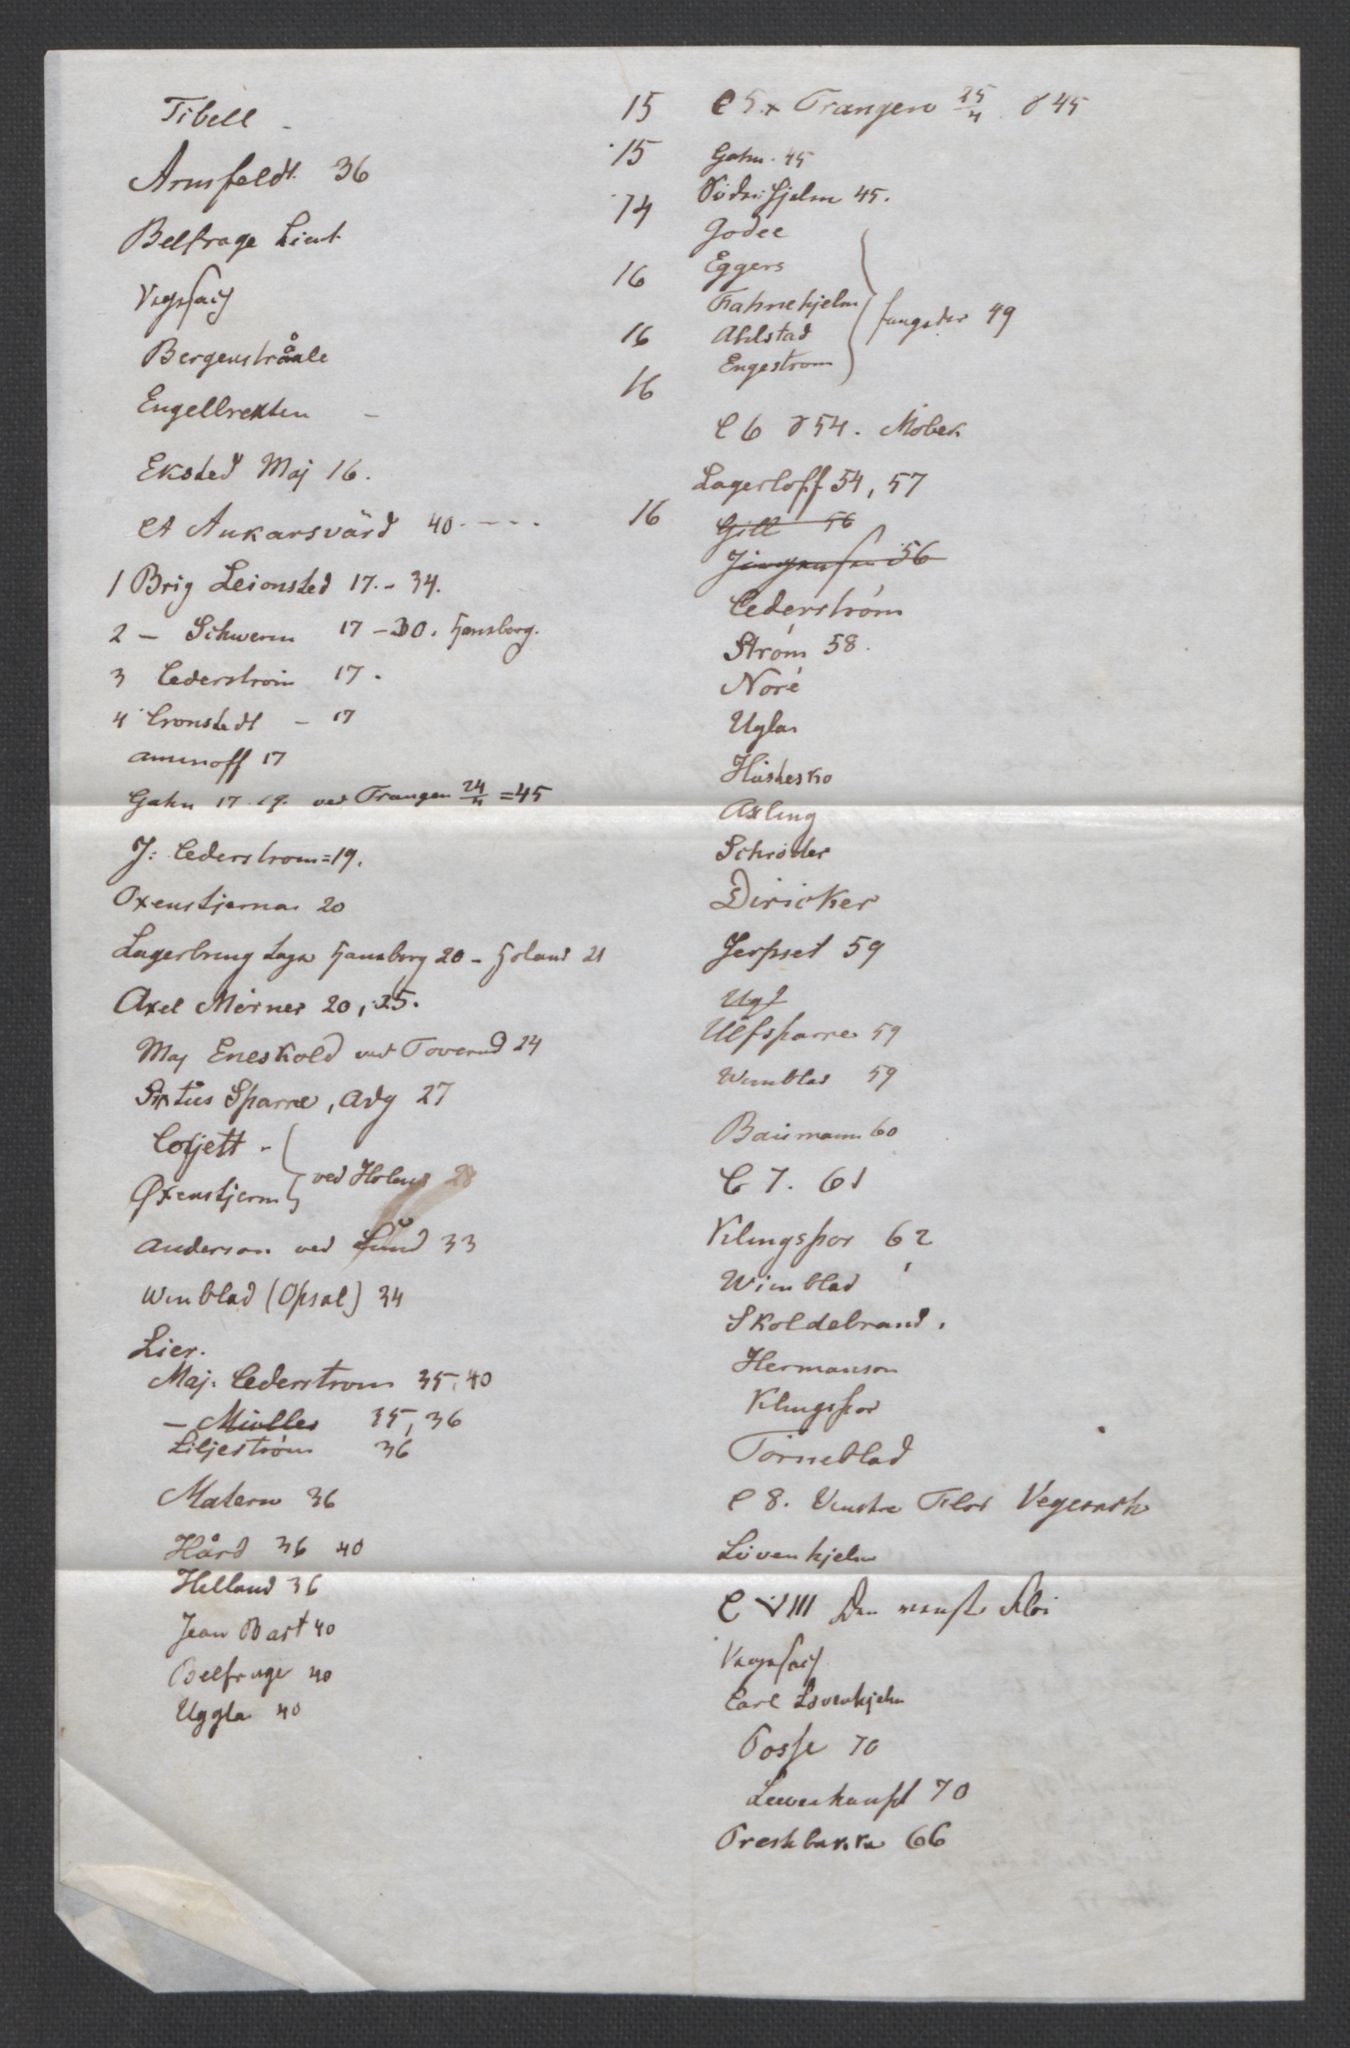 Tibell - 15
Armfeldt. 36 15
Belfrage Lieut. 14
Vegesack 16
Bergenstråle 16
Engelbrekten - 16
Eksted Maj 16.
CA Ankarsvärd 40 - - - - 16
1 Brig Leionsted 17. - 34.
2 - Schwerin 17 - 30.
3 Cederstrom 17.
4 Cronstedt - 17
Aminoff 17
Gahn 17. 19. ved Trangen 24/4 = 45
J: Cederstrom = 19.
Oxenstjerna 20
Lagerbring 20 - 21
Axel Mörner 20, 25.
Maj Eneskold ved Toverud 24
Sixtus Sparre, Adg 27
Coyett -
Øxenstjerna } ved 28
Anderson ved Lund 33
Winblad (Opsal) 34
Lier.
Maj. Cederstrom 35, 40
- 35, 36
Liljeström 36
Matern 36
Hård 36 40
Helland 36
Jean Bart 40
Belfrage 40
Uggla 40
C 5. Trangen 25/4 45
Gahn. 45
45.
Godee
Eggers
Fahnehjelm
Ahlstad
Engestrom } 49
C 6 54. Mobek
Lagerloff 54, 57
Gill 56
56
Cederström
Ström 58.
Noré
Uglas
Hästesko
Axling
Schröder
Diricker
Jerpset 59
Ugl
Ulfsparre 59
Winblad 59
Baumann 60
C 7. 61
Klingspor 62
Winblad
Skoldebrand.
Hermanson
Klingspor
Törneblad
C 8. Venstre Fløi Vegesack
Lövenhjelm
C VIII Den
Vegesack
Carl Lövenhjelm
Posse 70
Lewenhaupt 70
Prestbakke 66